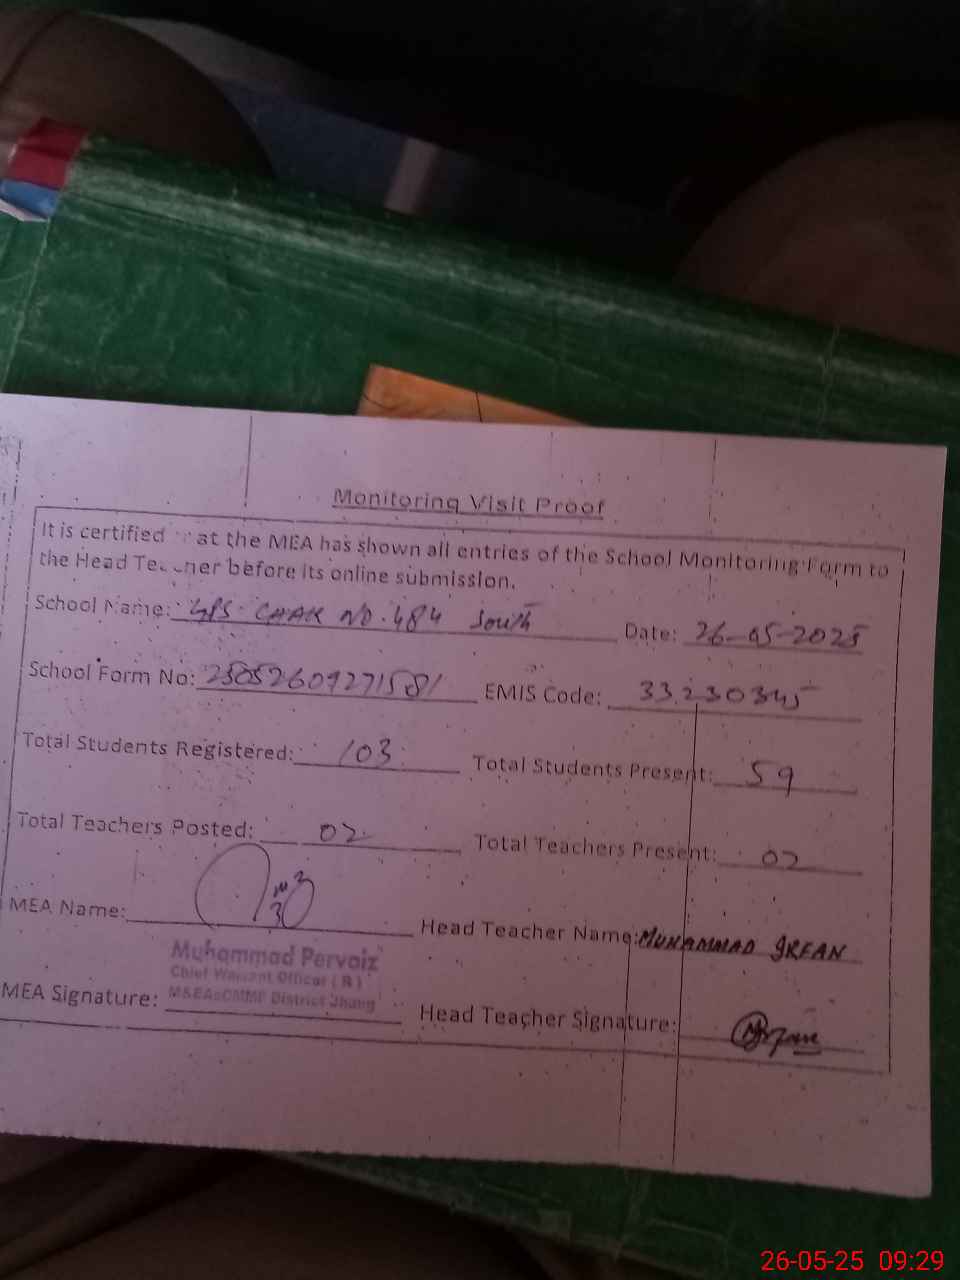 Monitoring Visit Proof
It is certified at the MEA has shown all entries of the School Monitoring Form to
the Head Teacher before its online submission.
School Name: GPS CHAK NO. 484 South Date: 26-05-2025
School Form No: EMIS Code: 33230345
Total Students Registered: 103 Total Students Present: 59
Total Teachers Posted: 02 Total Teachers Present: 02
MEA Name: Head Teacher Name: MUHAMMAD IRFAN
Muhammad Pervaiz
Chief Warrant Officer (R)
MEA Signature: District Jhang Head Teacher Signature:
26-05-25 09:29